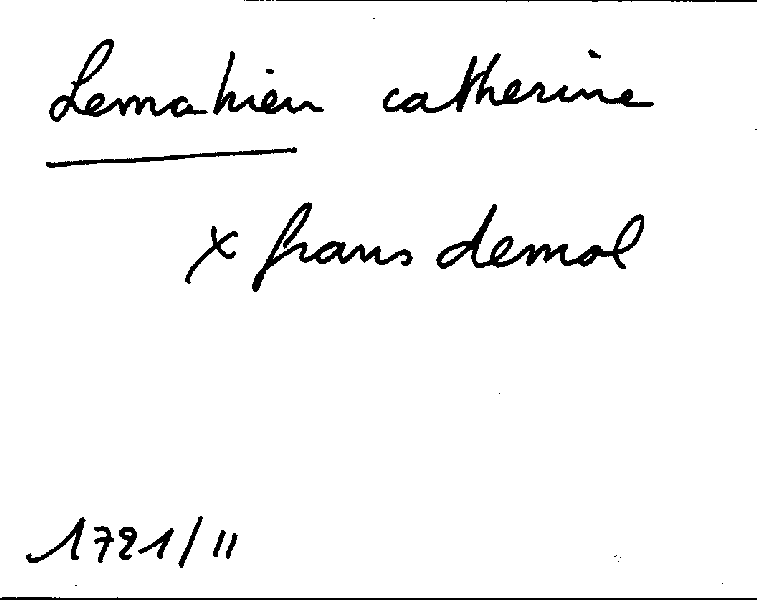 Lemahieu catherine
x frans demol
1721/11